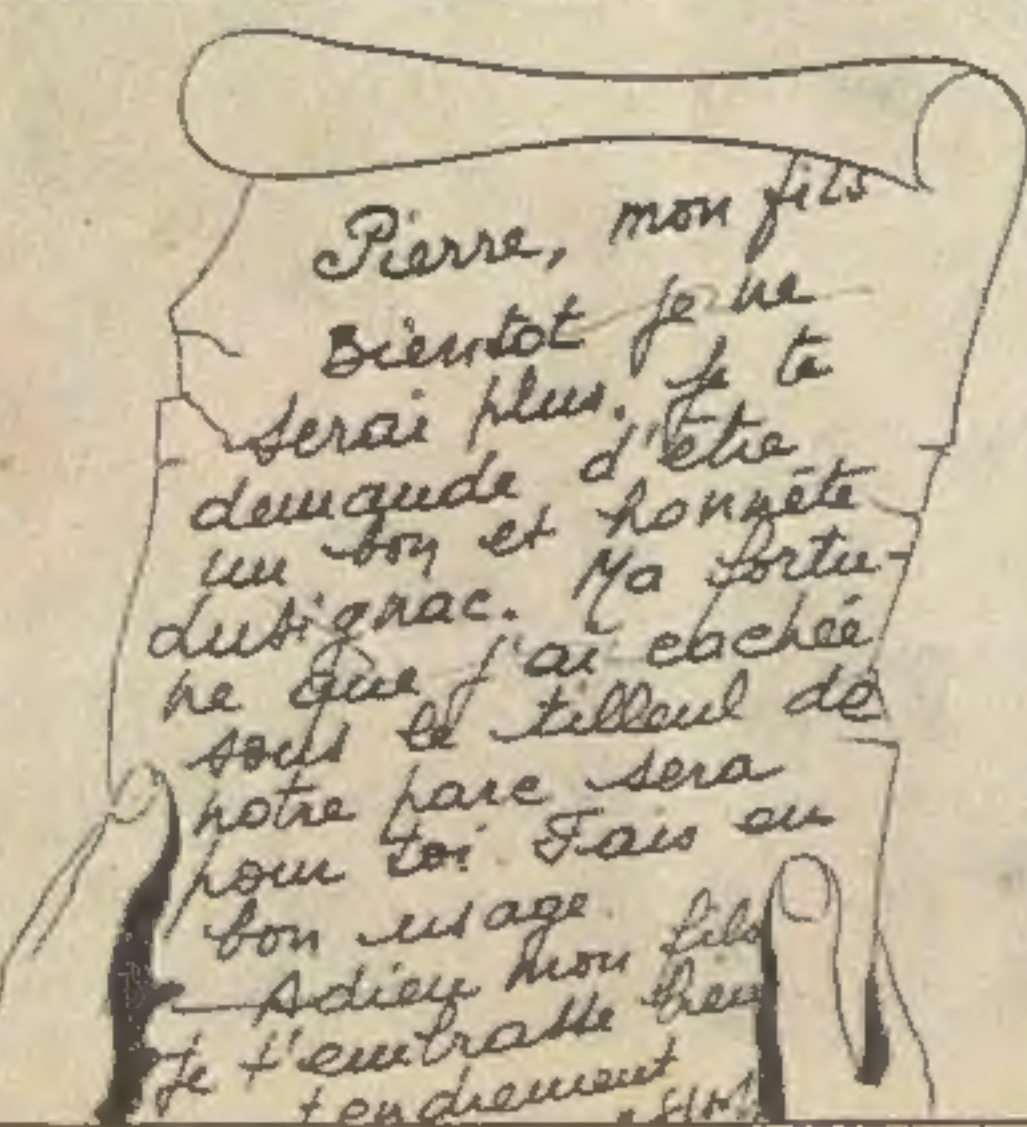 Pierre, mon fils
Bientot je ne
serai plus. Je te
demande d'être
un bon et honnête
Lusignac. Ma fortu-
ne que j'ai cachée
sous le tilleul de
notre parc sera
pour toi. Fais en
bon usage.
Adieu mon fils
Je t'embrasse bien
tendrement